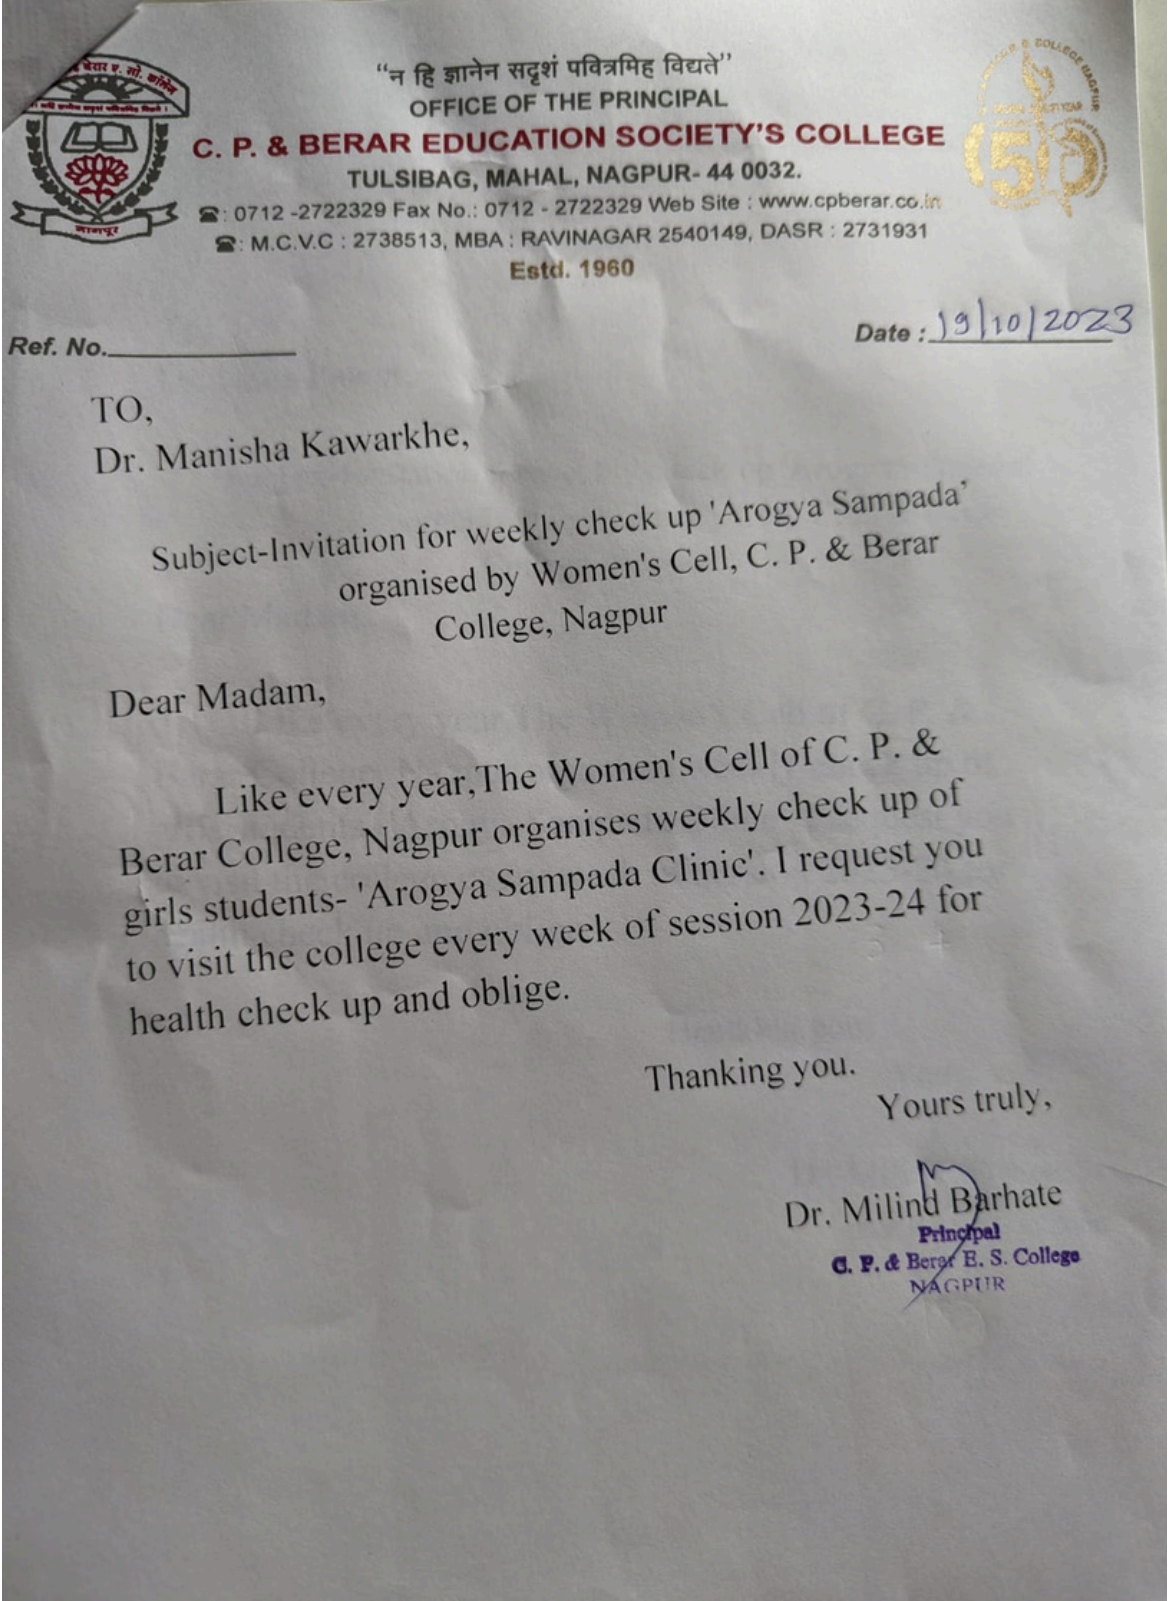 बेरार ए. सो. कॉलेज
नागपूर
“न हि ज्ञानेन सदृशं पवित्रमिह विद्यते”
OFFICE OF THE PRINCIPAL
C. P. & BERAR EDUCATION SOCIETY'S COLLEGE
TULSIBAG, MAHAL, NAGPUR- 44 0032.
☎: 0712 -2722329 Fax No.: 0712 - 2722329 Web Site : www.cpberar.co.in
☎: M.C.V.C : 2738513, MBA : RAVINAGAR 2540149, DASR : 2731931
Estd. 1960
COLLEGE NAGPUR
50
Ref. No.
Date : 19/10/2023
TO,
Dr. Manisha Kawarkhe,
Subject-Invitation for weekly check up 'Arogya Sampada’
organised by Women's Cell, C. P. & Berar
College, Nagpur
Dear Madam,
Like every year,The Women's Cell of C. P. &
Berar College, Nagpur organises weekly check up of
girls students- 'Arogya Sampada Clinic'. I request you
to visit the college every week of session 2023-24 for
health check up and oblige.
Thanking you.
Yours truly,
Dr. Milind Barhate
Principal
C. P. & Berar E. S. College
NAGPUR